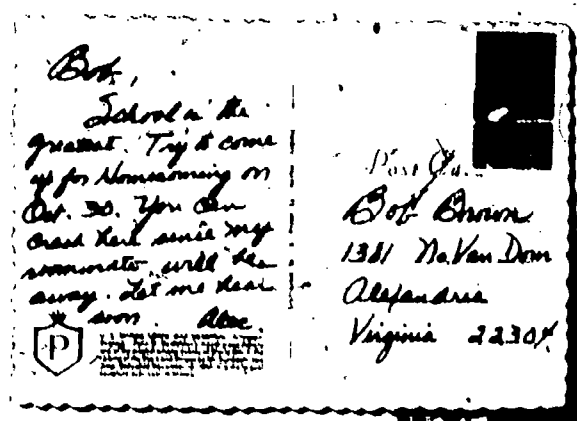 Bob,
School is the
greatest. Try to come
up for Homecoming on
Oct. 30. You can
crash here since my
roommate will be
away. Let me hear
soon. Alec
P
Post
Bob Brown
1381 No. Van Dorn
Alexandria
Virginia 22304